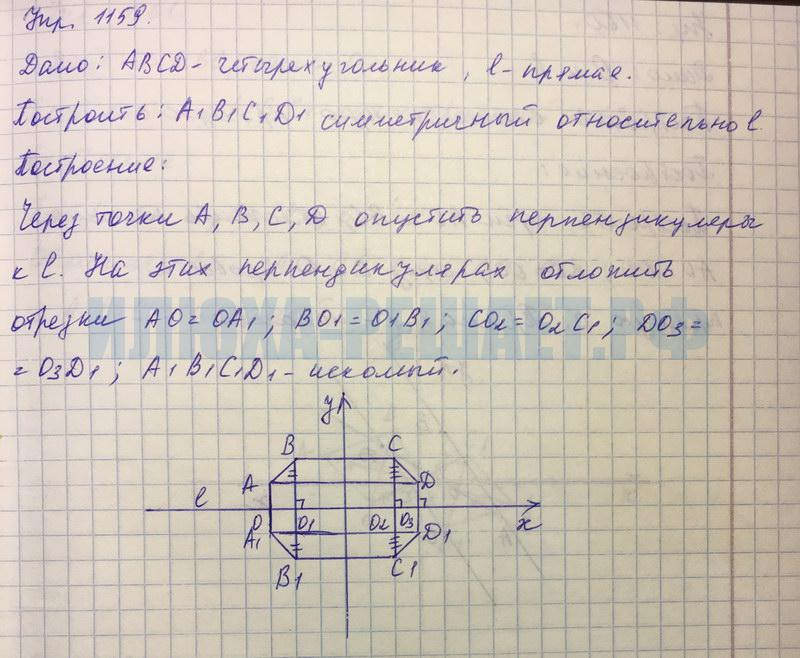 Упр. 1159.
Дано: ABCD - четырехугольник, l - прямая.
Построить: A1B1C1D1 симметричный относительно l.
Построение:
Через точки A, B, C, D опустить перпендикуляры
к l. На этих перпендикулярах отложить
отрезки AO = OA1; BO1 = O1B1; CO2 = O2C1; DO3 =
= O3D1; A1B1C1D1 - искомый.
ИЛЮХА-РЕШАЕТ.РФ
y
B C
A D
l
O O1 O2 O3 x
A1 D1
B1 C1